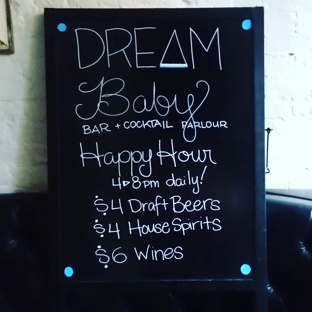 DREAM
Baby
BAR + COCKTAIL PARLOUR
Happy Hour
4-8pm daily!
$4 Draft Beers
$4 House Spirits
$6 Wines